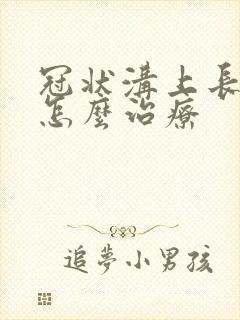 冠狀溝上長
怎麼治療
追夢小男孩